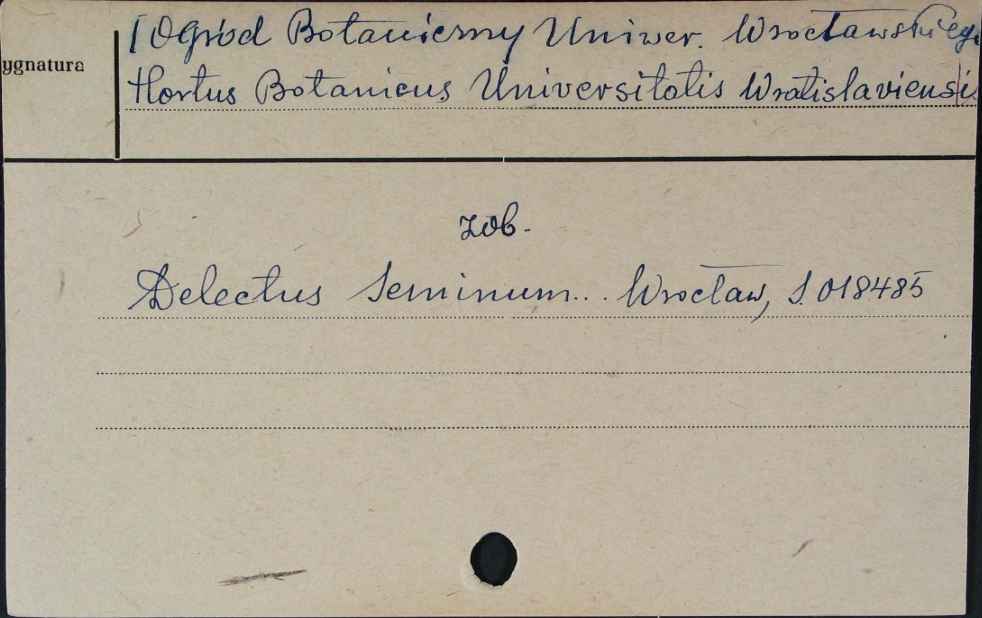 [Ogród Botaniczny Uniwer. Wrocławskiego
ygnatura
Hortus Botanicus Universitatis Wratislaviensis
zob.
Delectus Seminum... Wrocław, S. 018485